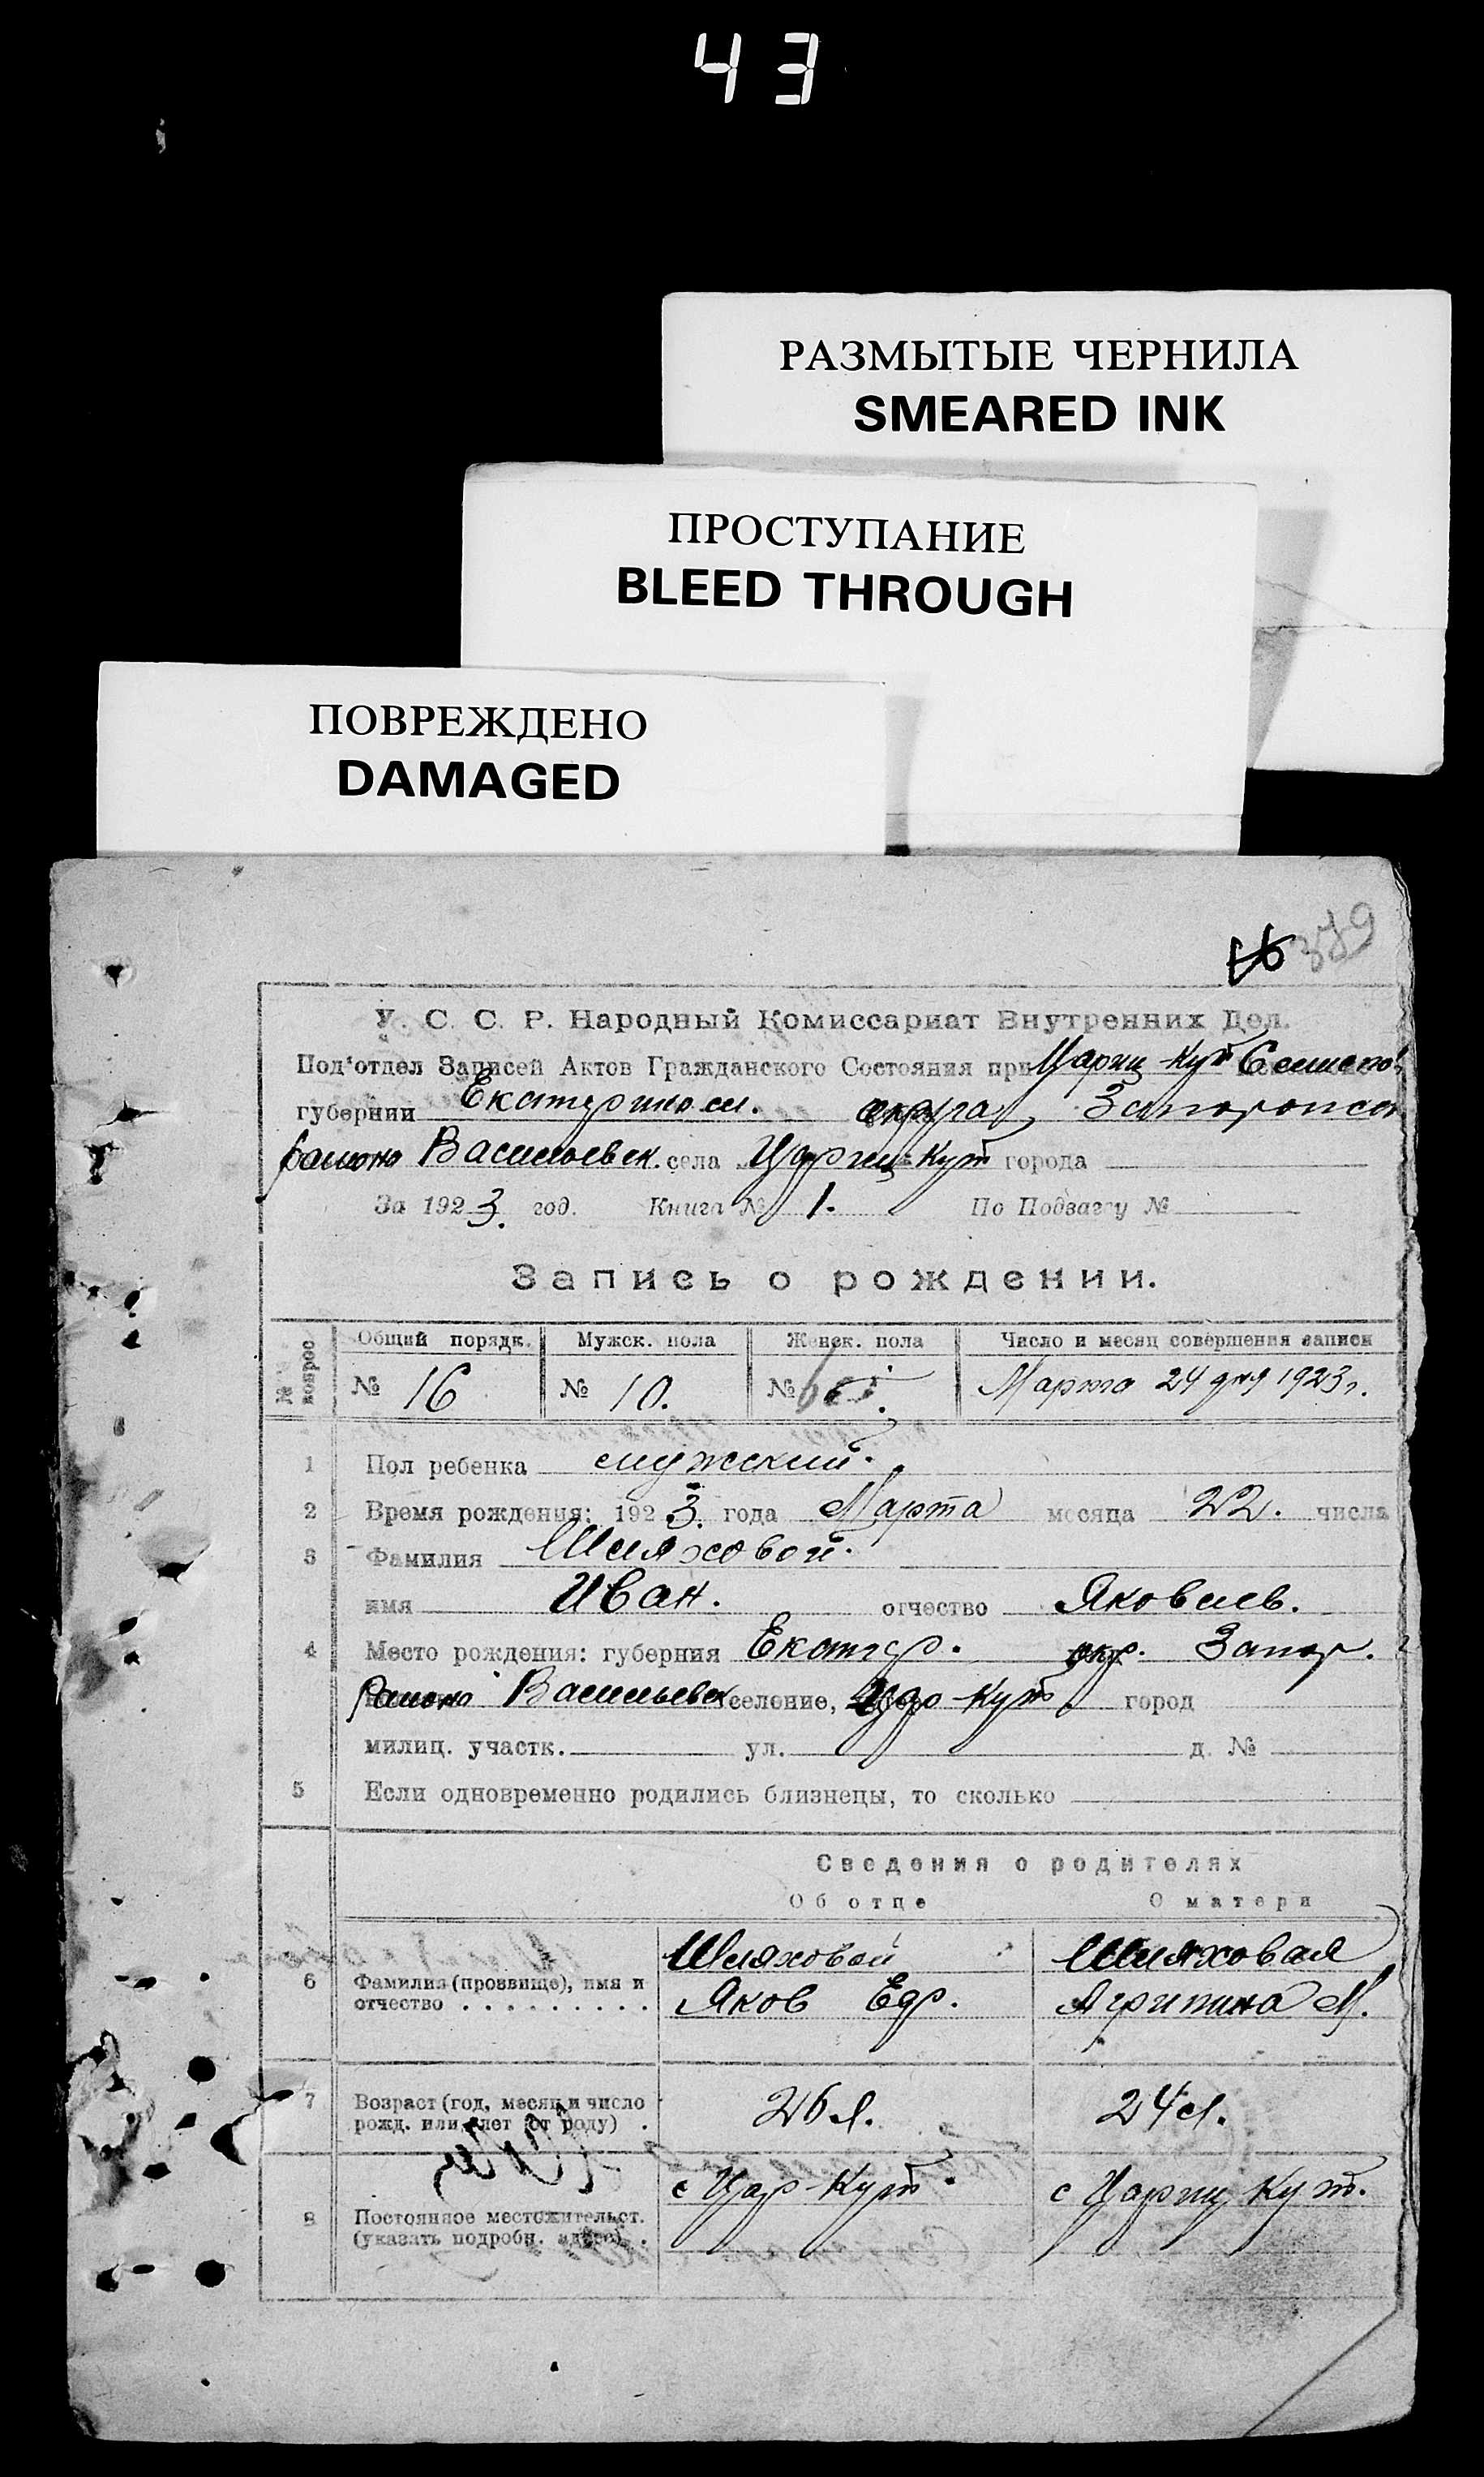 43
РАЗМЫТЫЕ ЧЕРНИЛА
SMEARED INK
ПРОСТУПАНИЕ
BLEED THROUGH
ПОВРЕЖДЕНО
DAMAGED
379
У. С. С. Р. Народный Комиссариат Внутренних Дел.
Под‘отдел Записей Актов Гражданского Состояния при Цариц Кут
губернии Екатериносл. округа Запорожск
района Васильевск. села Цариц-Кут города
За 1923. год. Книга № 1. По Подзагсу №
Запись о рождении.
№ вопрос Общий порядк. Мужск. пола Женск. пола Число и месяц совершения записи
№ 16 № 10. № Марта 24 дня 1923 г.
1 Пол ребенка мужский.
2 Время рождения: 1923. года Марта месяца 22. числа
3 Фамилия Шляховой.
имя Иван. отчество Яковлев.
4 Место рождения: губерния Екатер. окр. Запор.
района Васильевск селение, Кут город
милиц. участк. ул. д. №
5 Если одновременно родились близнецы, то сколько
Сведения о родителях
Об отце О матери
6 Фамилия (прозвище), имя и отчество Шляховой Шляховая
Яков Ефр. Агрипина М.
7 Возраст (год, месяц и число рожд. или лет от роду) 26 л. 24 л.
8 Постоянное местожительст. (указать подробн. адрес) с Цар-Кут с Цариц Кут.